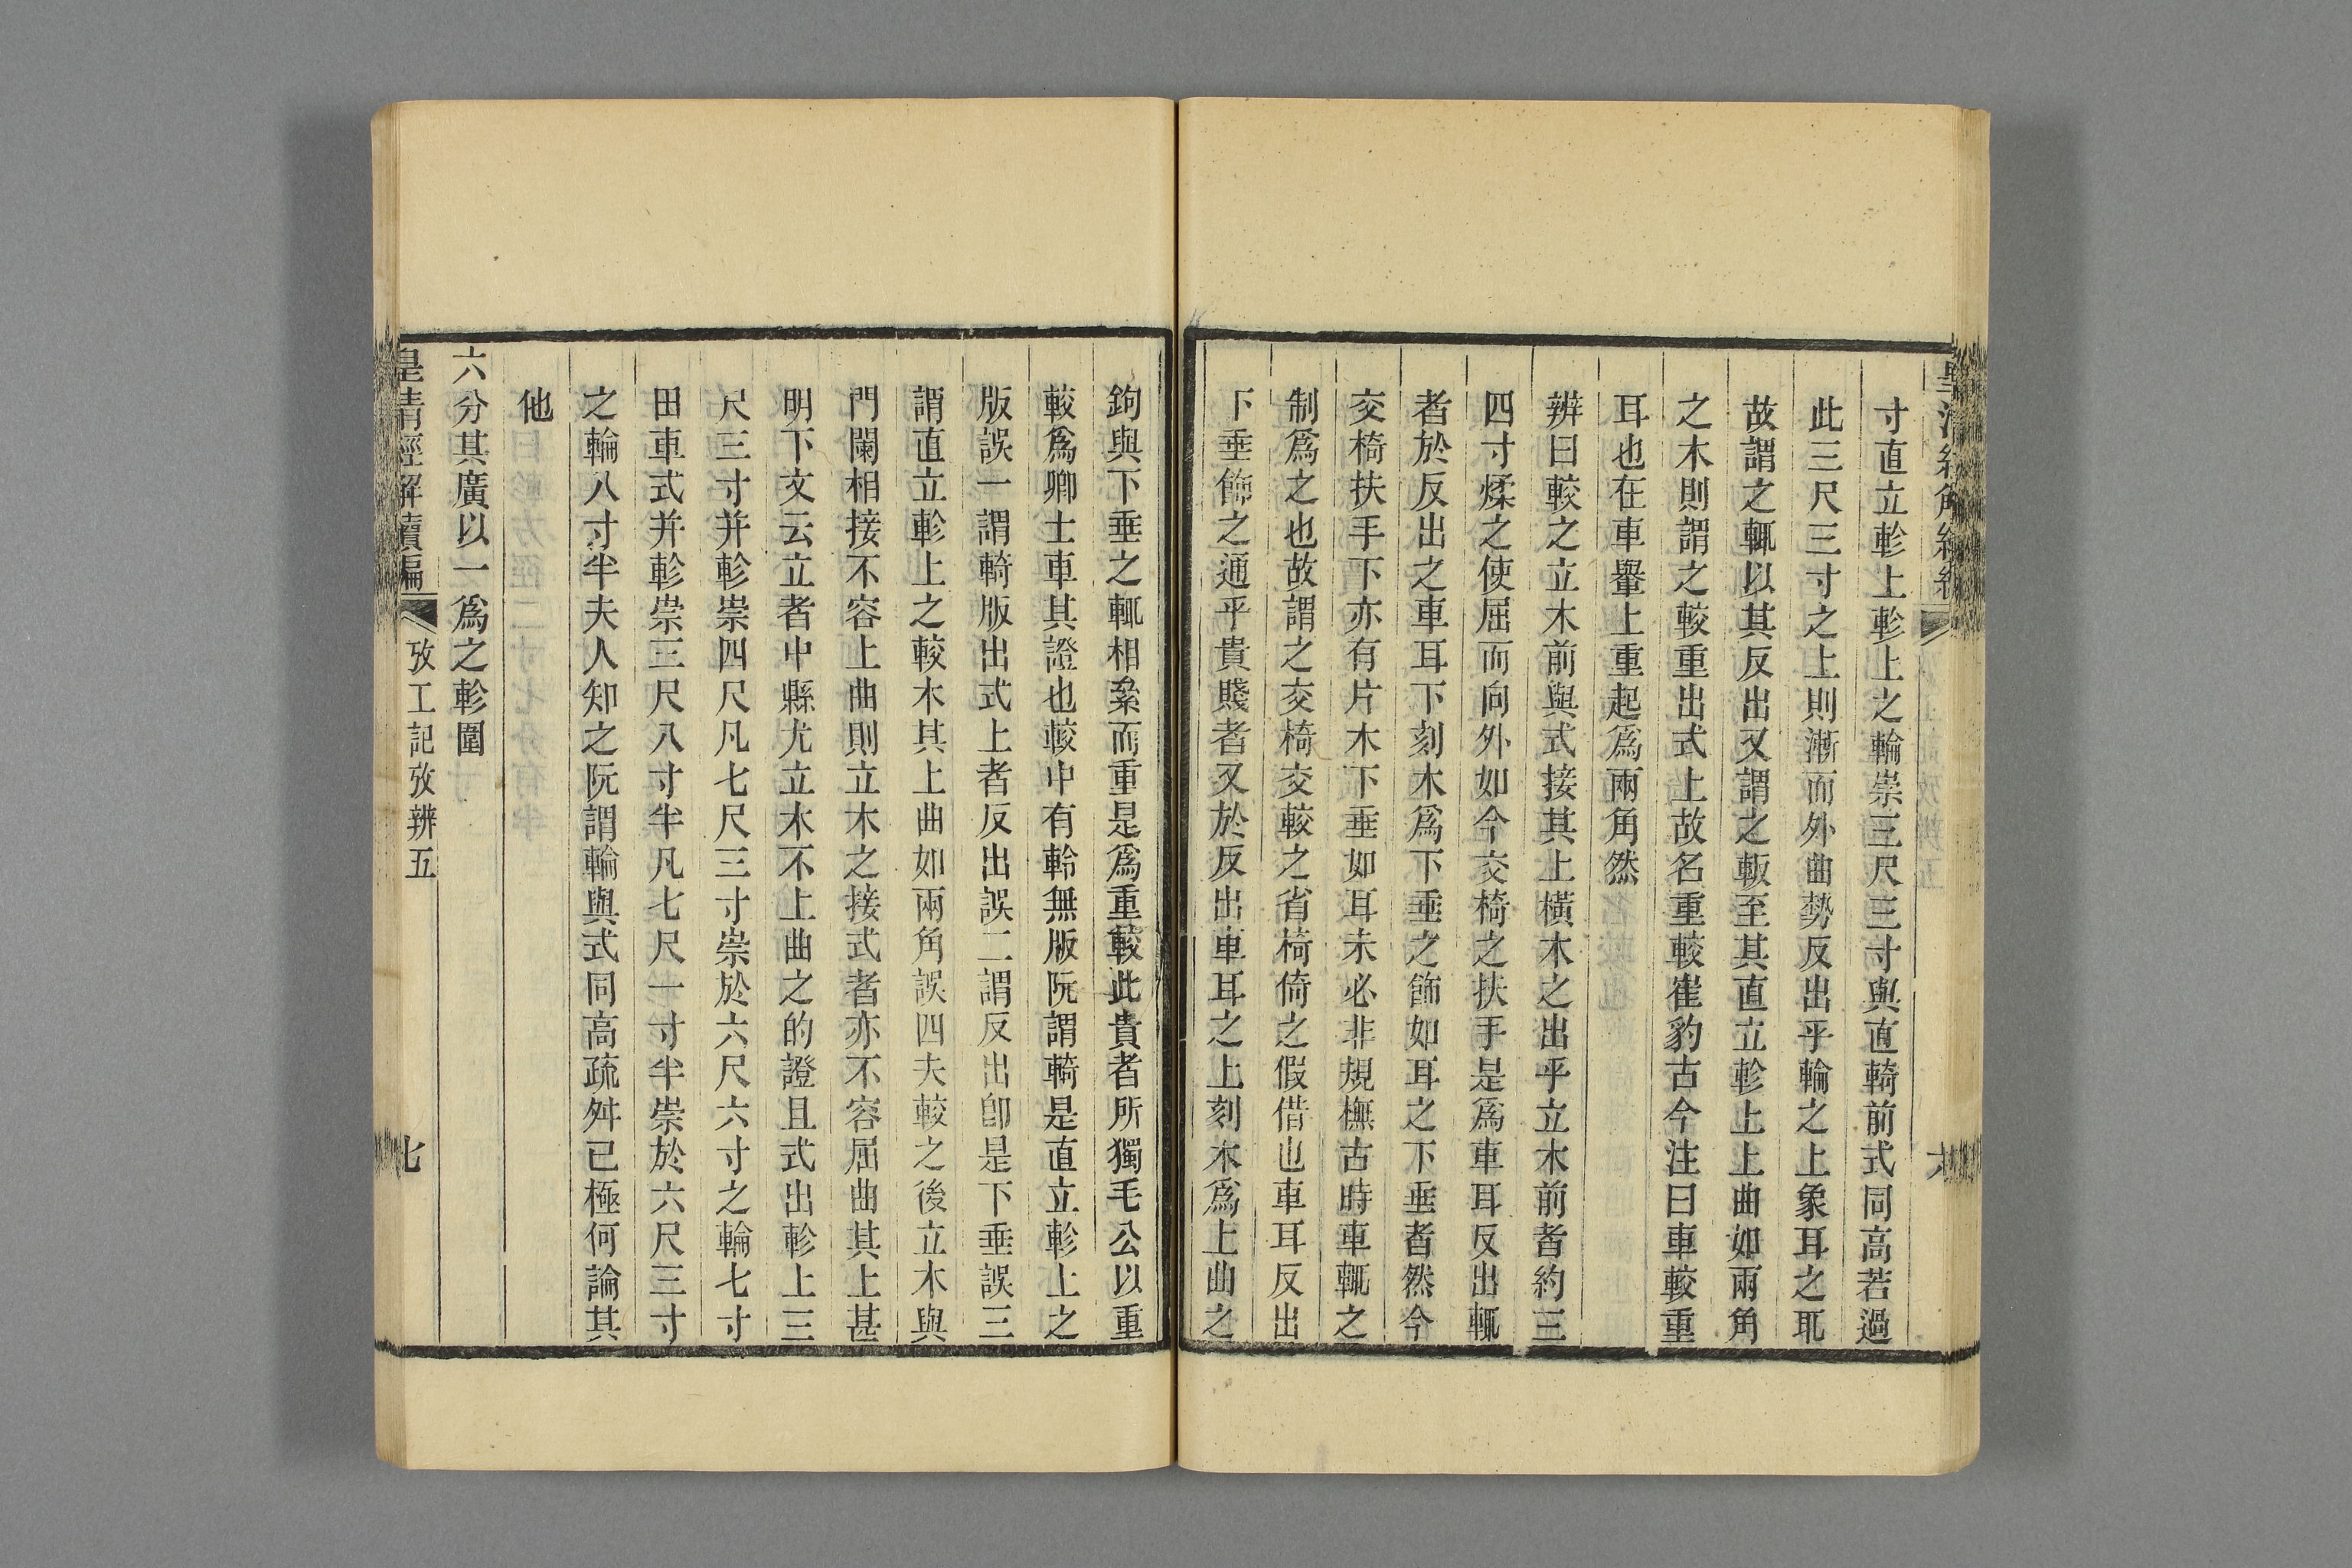 寸直立軫上軫上之輪崇三尺三寸與直輢前式同高若過
此三尺三寸之上則漸而外曲勢反出乎輪之上象耳之耴
故謂之輒以其反出又謂之軓至其直立軫上上曲如兩角
之木則謂之較重出式上故名重較崔豹古今注曰車較重
耳也在車轝上重起爲兩角然
辨曰較之立木前與式接其上橫木之出乎立木前者約三
四寸煣之使屈而向外如今交椅之扶手是爲車耳反出輒
者於反出之車耳下刻木爲下垂之飾如耳之下垂者然今
交椅扶手下亦有片木下垂如耳未必非規橅古時車輒之
制爲之也故謂之交椅交較之省椅倚之假借也車耳反出
下垂飾之通乎貴賤者又於反出車耳之上刻木爲上曲之
鉤與下垂之輒相絫而重是爲重較此貴者所獨毛公以重
較爲卿士車其證也較中有軨無版阮謂輢是直立軫上之
版誤一謂輢版出式上者反出誤二謂反出卽是下垂誤三
謂直立軫上之較木其上曲如兩角誤四夫較之後立木與
門闌相接不容上曲則立木之接式者亦不容屈曲其上甚
明下文云立者中縣尤立木不上曲之的證且式出軫上三
尺三寸并軫崇四尺凡七尺三寸崇於六尺六寸之輪七寸
田車式并軫崇三尺八寸半凡七尺一寸半崇於六尺三寸
之輪八寸半夫人知之阮謂輪與式同高疏舛已極何論其
他
六分其廣以一爲之軫圍
皇清經解續編 攷工記攷辨五 七